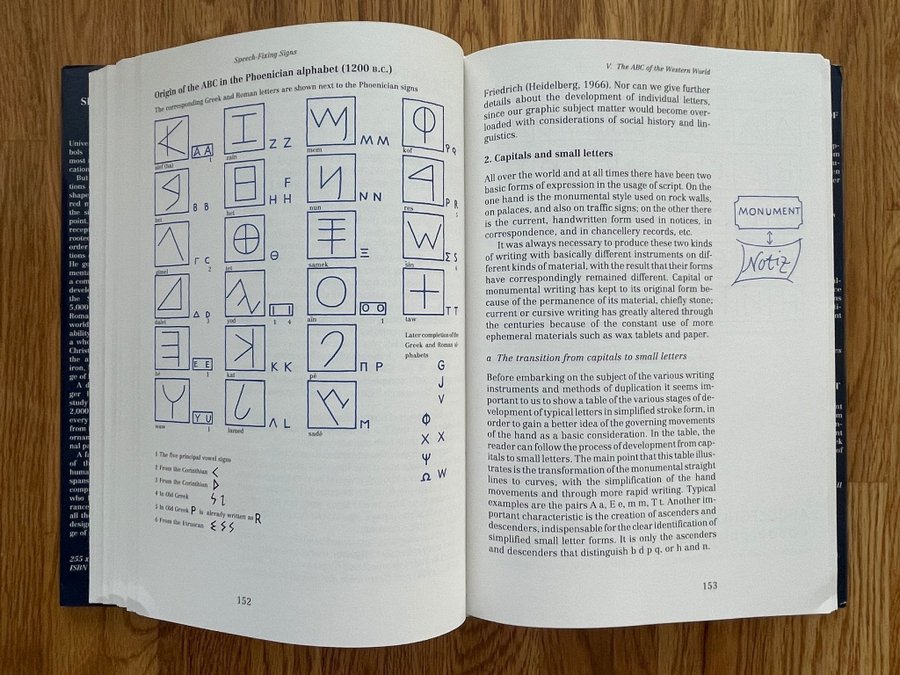 Speech-Fixing Signs
Origin of the ABC in the Phoenician alphabet (1200 B.C.)
The corresponding Greek and Roman letters are shown next to the Phoenician signs
A A
1
Z Z
zain
M M
mem
P Q
kof
B B
bet
F
H H
het
N N
nun
P R
5
res
Γ C
2
gimel
Θ
tet
Ξ
samek
Σ S
6
šin
Δ D
3
dalet
I I
1 4
yod
O O
1
ain
T T
taw
E E
1
hé
K K
kaf
Π P
pé
Y U
1
waw
Λ L
lamed
M
sadé
Later completion of the
Greek and Roman al-
phabets
G
J
V
Φ
X X
Ψ
Ω W
1 The five principal vowel signs
2 From the Corinthian <
3 From the Corinthian D
4 In Old Greek
5 In Old Greek P is already written as R
6 From the Etruscan
152
V. The ABC of the Western World
Friedrich (Heidelberg, 1966). Nor can we give further
details about the development of individual letters,
since our graphic subject matter would become over-
loaded with considerations of social history and lin-
guistics.
2. Capitals and small letters
All over the world and at all times there have been two
basic forms of expression in the usage of script. On the
one hand is the monumental style used on rock walls,
on palaces, and also on traffic signs; on the other there
is the current, handwritten form used in notices, in
correspondence, and in chancellery records, etc.
It was always necessary to produce these two kinds
of writing with basically different instruments on dif-
ferent kinds of material, with the result that their forms
have correspondingly remained different. Capital or
monumental writing has kept to its original form be-
cause of the permanence of its material, chiefly stone;
current or cursive writing has greatly altered through
the centuries because of the constant use of more
ephemeral materials such as wax tablets and paper.
MONUMENT
Notiz
a The transition from capitals to small letters
Before embarking on the subject of the various writing
instruments and methods of duplication it seems im-
portant to us to show a table of the various stages of de-
velopment of typical letters in simplified stroke form, in
order to gain a better idea of the governing movements
of the hand as a basic consideration. In the table, the
reader can follow the process of development from cap-
itals to small letters. The main point that this table illus-
trates is the transformation of the monumental straight
lines to curves, with the simplification of the hand
movements and through more rapid writing. Typical
examples are the pairs A a, E e, m m, T t. Another im-
portant characteristic is the creation of ascenders and
descenders, indispensable for the clear identification of
simplified small letter forms. It is only the ascenders
and descenders that distinguish b d p q, or h and n.
153